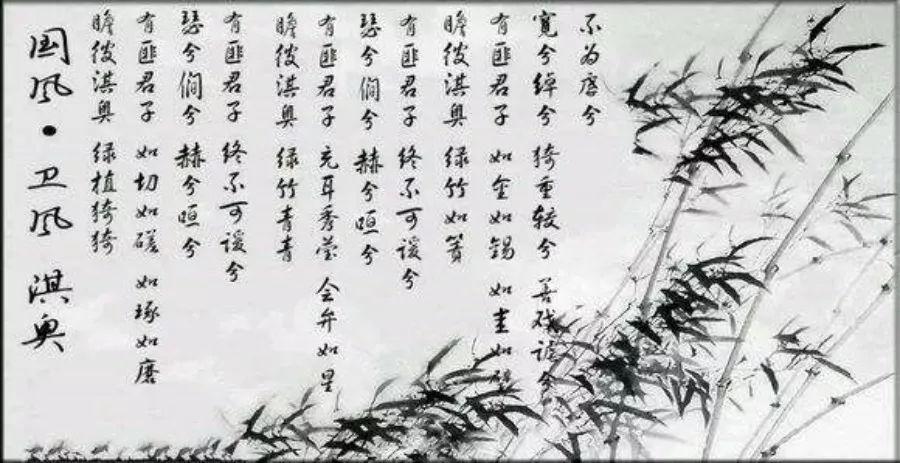 国风·卫风 淇奥
瞻彼淇奥 绿植猗猗
有匪君子 如切如磋 如琢如磨
瑟兮僩兮 赫兮咺兮
有匪君子 终不可谖兮
瞻彼淇奥 绿竹青青
有匪君子 充耳秀莹 会弁如星
瑟兮僩兮 赫兮咺兮
有匪君子 终不可谖兮
瞻彼淇奥 绿竹如箦
有匪君子 如金如锡 如圭如
宽兮绰兮 猗重较兮 善戏谑兮
不为虐兮